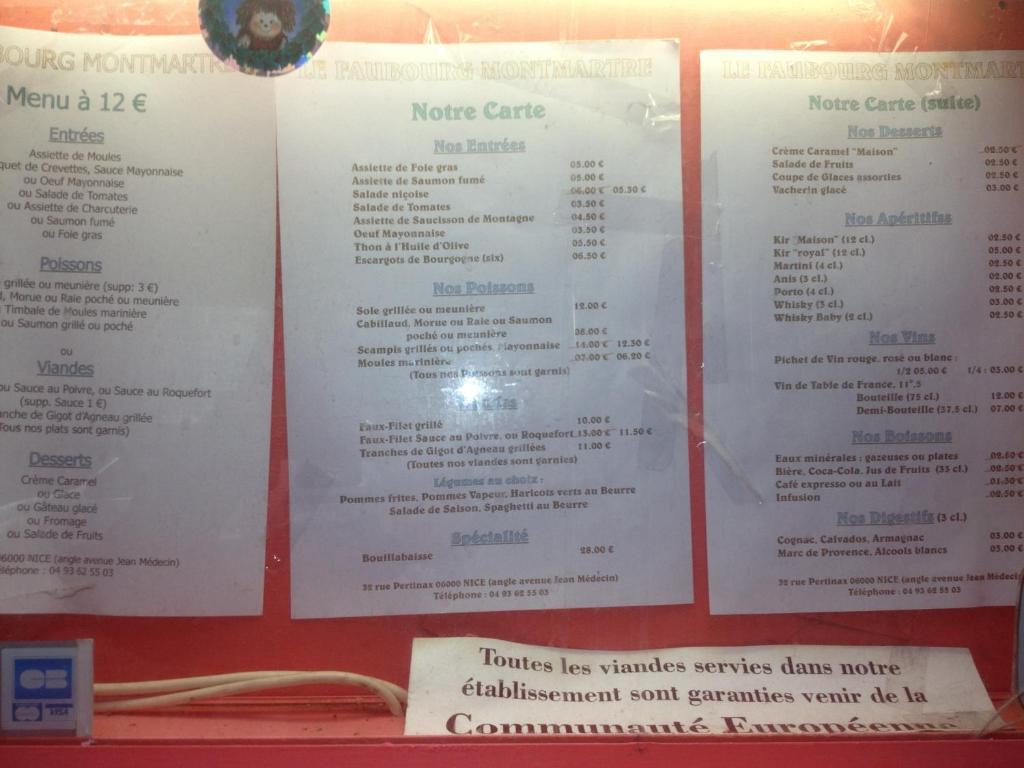 BOURG MONTMARTRE
Menu à 12 €
Entrées
Assiette de Moules
quet de Crevettes, Sauce Mayonnaise
ou Oeuf Mayonnaise
ou Salade de Tomates
ou Assiette de Charcuterie
ou Saumon fumé
ou Foie gras
Poissons
grillée ou meunière (supp: 3 €)
, Morue ou Raie poché ou meunière
Timbale de Moules marinière
ou Saumon grillé ou poché
ou
Viandes
ou Sauce au Poivre, ou Sauce au Roquefort
(supp. Sauce 1 €)
anche de Gigot d'Agneau grillée
Tous nos plats sont garnis)
Desserts
Crème Caramel
ou Glace
ou Gâteau glacé
ou Fromage
ou Salade de Fruits
06000 NICE (angle avenue Jean Médecin)
éléphone : 04 93 62 55 03
LE FAUBOURG MONTMARTRE
Notre Carte
Nos Entrées
Assiette de Foie gras 05.00 €
Assiette de Saumon fumé 05.00 €
Salade niçoise 06.00 € 05.30 €
Salade de Tomates 03.50 €
Assiette de Saucisson de Montagne 04.50 €
Oeuf Mayonnaise 03.50 €
Thon à l'Huile d'Olive 05.50 €
Escargots de Bourgogne (six) 06.50 €
Nos Poissons
Sole grillée ou meunière 12.00 €
Cabillaud, Morue ou Raie ou Saumon
poché ou meunière 08.00 €
Scampis grillés ou pochés, Mayonnaise 14.00 € 12.30 €
Moules marinière 07.00 € 06.20 €
(Tous nos Poissons sont garnis)
Faux-Filet grillé 10.00 €
Faux-Filet Sauce au Poivre, ou Roquefort 13.00 € 11.50 €
Tranches de Gigot d'Agneau grillées 11.00 €
(Toutes nos viandes sont garnies)
Légumes au choix :
Pommes frites, Pommes Vapeur, Haricots verts au Beurre
Salade de Saison, Spaghetti au Beurre
Spécialité
Bouillabaisse 28.00 €
32 rue Pertinax 06000 NICE (angle avenue Jean Médecin)
Téléphone : 04 93 62 55 03
LE FAUBOURG MONTMART
Notre Carte (suite)
Nos Desserts
Crème Caramel "Maison" 02.50 €
Salade de Fruits 02.50 €
Coupe de Glaces assorties 02.50 €
Vacherin glacé 03.00 €
Nos Apéritifss
Kir "Maison" (12 cl.) 02.50 €
Kir "royal" (12 cl.) 05.00 €
Martini (4 cl.) 02.50 €
Anis (3 cl.) 02.00 €
Porto (4 cl.) 02.50 €
Whisky (3 cl.) 03.00 €
Whisky Baby (2 cl.) 02.50 €
Nos Vins
Pichet de Vin rouge, rosé ou blanc :
1/2 05.00 € 1/4 : 03.00 €
Vin de Table de France, 11°.5
Bouteille (75 cl.) 12.00 €
Demi-Bouteille (37.5 cl.) 07.00 €
Nos Boissons
Eaux minérales : gazeuses ou plates
Bière, Coca-Cola, Jus de Fruits (33 cl.) 02.50 €
Café expresso ou au Lait 01.50 €
Infusion 02.50 €
Nos Digestifs (3 cl.)
Cognac, Calvados, Armagnac 03.00 €
Marc de Provence, Alcools blancs 03.00 €
32 rue Pertinax 06000 NICE (angle avenue Jean Médecin
Téléphone : 04 93 62 55 03
CB
VISA
Toutes les viandes servies dans notre
établissement sont garanties venir de la
Communauté Européenne